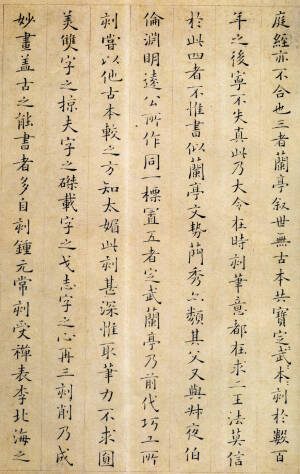 庭經亦不合也三者蘭亭叙世無古本共寶定武本刻於數百
年之後寧不失真此乃大令在時刻筆意都在求二王法莫信
於此四者不惟書似蘭亭文勢蕭秀亦類其父又與叔夜伯
倫淵明遠公所作同一標置五者定武蘭亭乃前代巧工所
刻嘗以他古本較之方知太媚此刻甚深惟取筆力不求圓
美雙字之掠夫字之磔載字之戈志字之心再三刻削乃成
妙畫盖古之能書者多自刻鍾元常刻受禪表李北海之